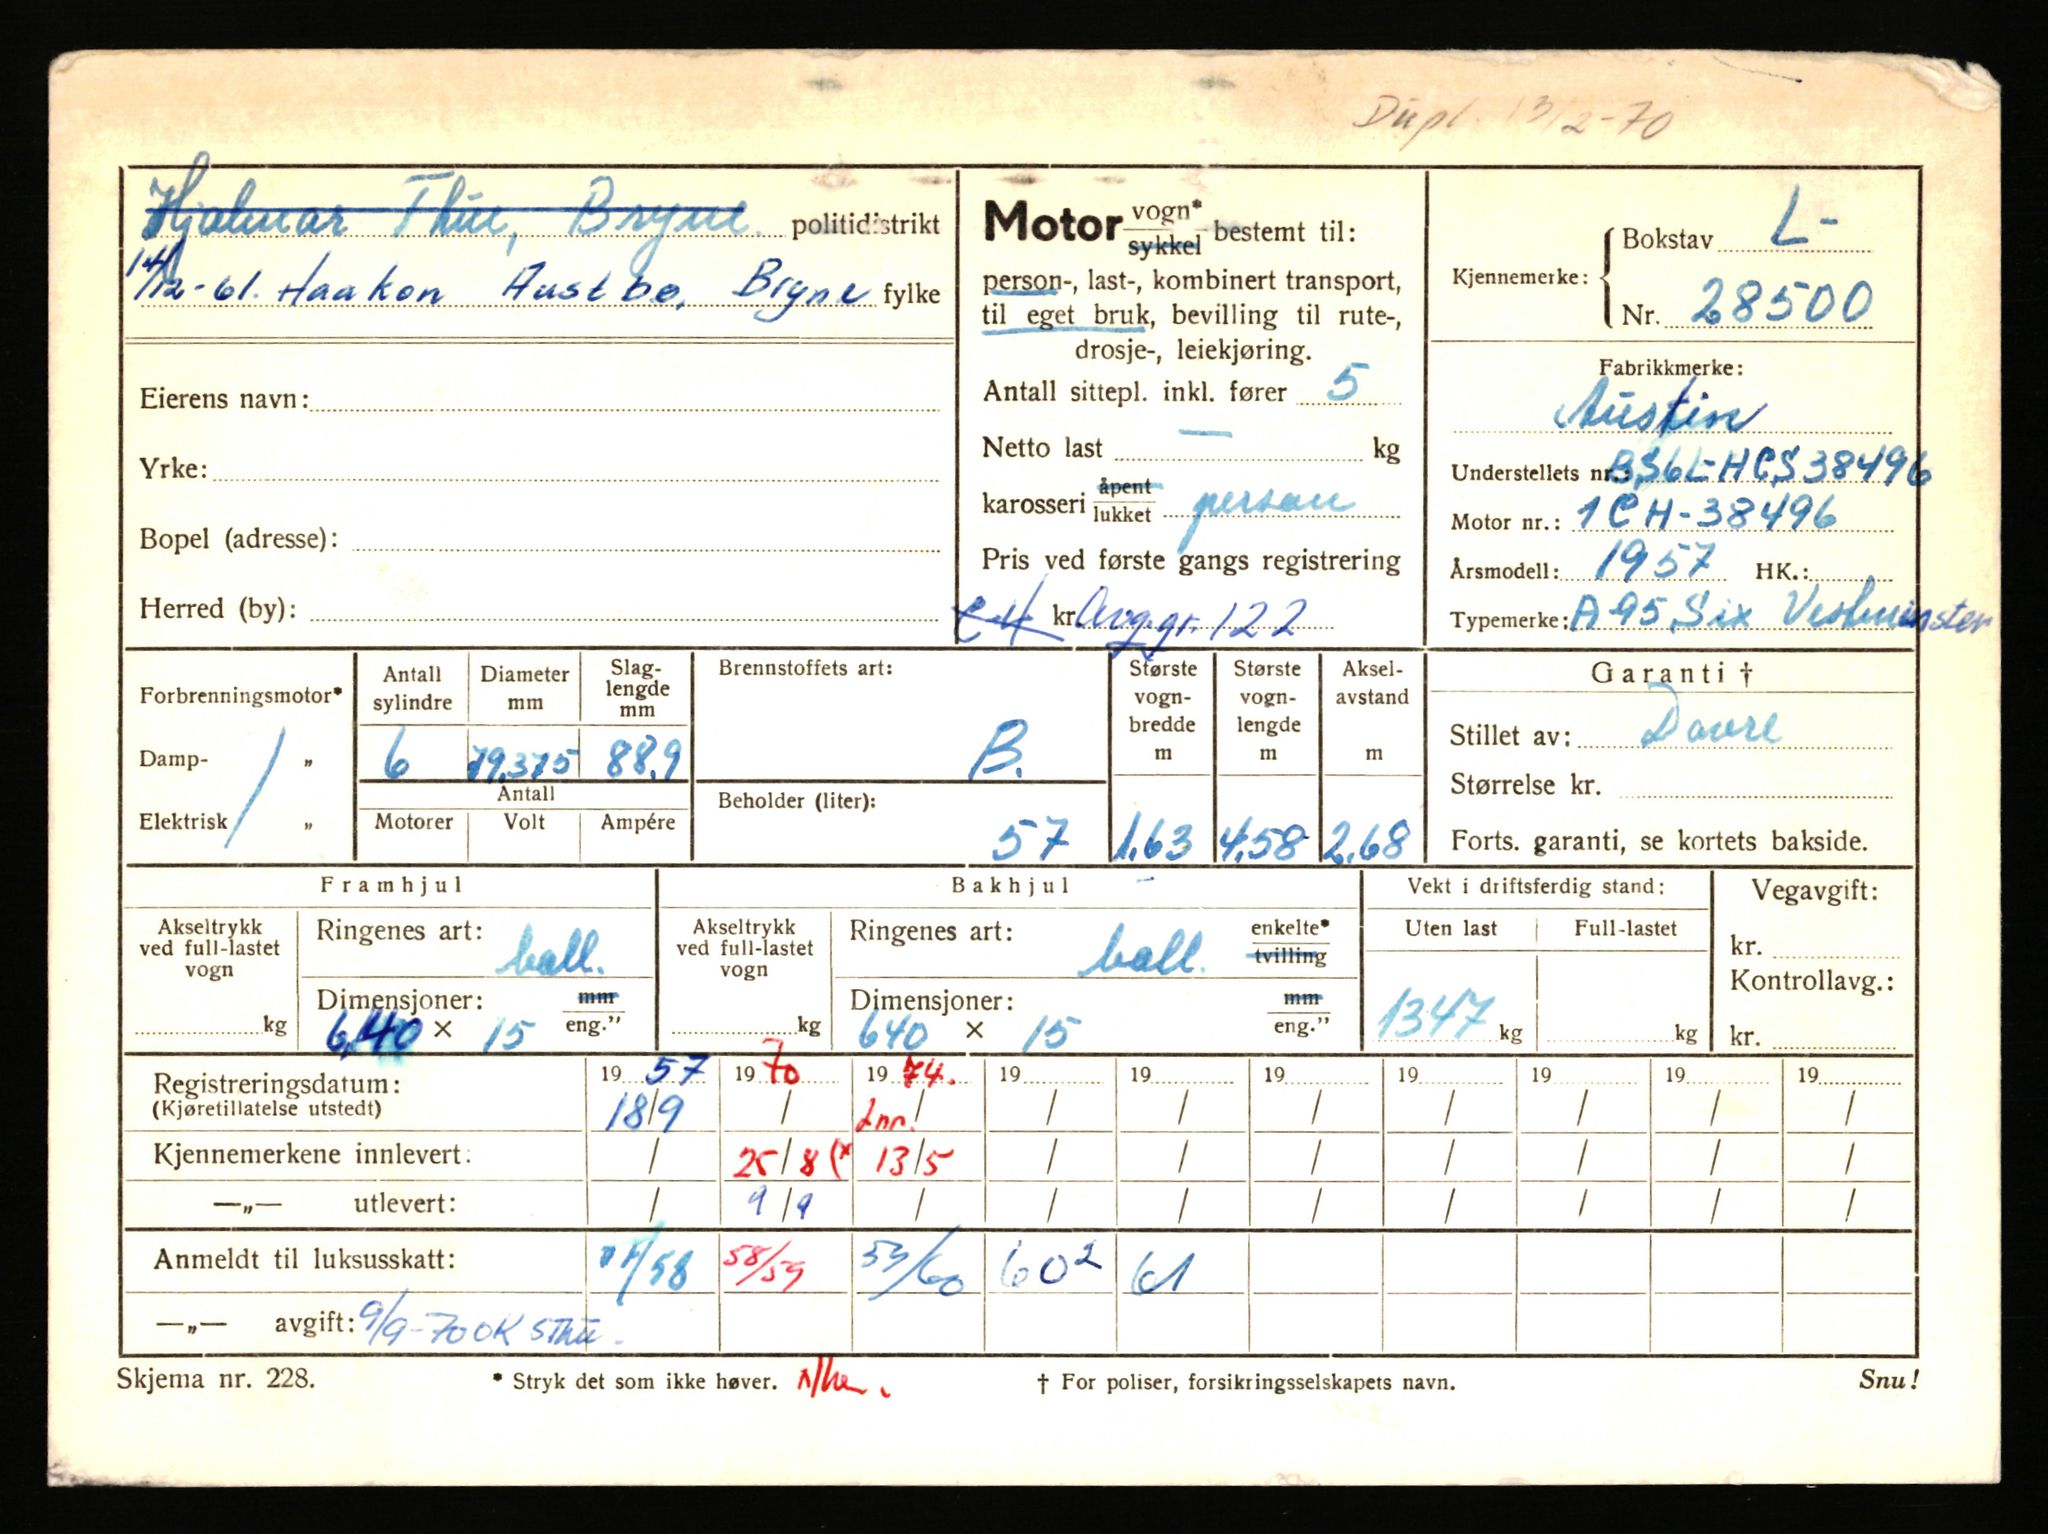 Dupl. 13/2-70
Hjalmar Thue, Bryne. politidistrikt
14/12-61. Haakon Austbø, Bryne fylke
Eierens navn:
Yrke:
Bopel (adresse):
Herred (by):
Motor vogn* sykkel bestemt til:
person-, last-, kombinert transport,
til eget bruk, bevilling til rute-,
drosje-, leiekjøring.
Antall sittepl. inkl. fører 5
Netto last — kg
karosseri åpent lukket person
Pris ved første gangs registrering
kr Avg.gr. 122
Kjennemerke: Bokstav L-
Nr. 28500
Fabrikkmerke:
Austin
Understellets nr.: BS6L-HCS38496
Motor nr.: 1CH-38496
Årsmodell: 1957 HK.:
Typemerke: A 95 Six Vestminster
Forbrenningsmotor*
Damp- „
Elektrisk „
Antall sylindre Diameter mm Slag-lengde mm
6 79,375 88,9
Antall
Motorer Volt Ampére
Brennstoffets art:
B.
Beholder (liter):
57
Største vogn-bredde m Største vogn-lengde m Aksel-avstand m
1,63 4,58 2,68
Garanti †
Stillet av: Dovre
Størrelse kr.
Forts. garanti, se kortets bakside.
Framhjul
Akseltrykk ved full-lastet vogn
kg
Ringenes art: ball.
Dimensjoner: mm
6,40 × 15 eng."
Bakhjul
Akseltrykk ved full-lastet vogn
kg
Ringenes art: ball. enkelte* tvilling
Dimensjoner: mm
640 × 15 eng."
Vekt i driftsferdig stand:
Uten last Full-lastet
1347 kg kg
Vegavgift:
kr.
Kontrollavg.:
kr.
Registreringsdatum: 19 57 19 70 19 74. 19 19 19 19 19 19 19
(Kjøretillatelse utstedt) 18/9 / Inn. / / / / / / / /
Kjennemerkene innlevert: / 25/8 (* 13/5 / / / / / / /
—„— utlevert: / 9/9 / / / / / / / /
Anmeldt til luksusskatt: /58 58/59 59/60 60² 61
—„— avgift: 9/9-70 OK SThu.
Skjema nr. 228. * Stryk det som ikke høver. † For poliser, forsikringsselskapets navn. Snu!